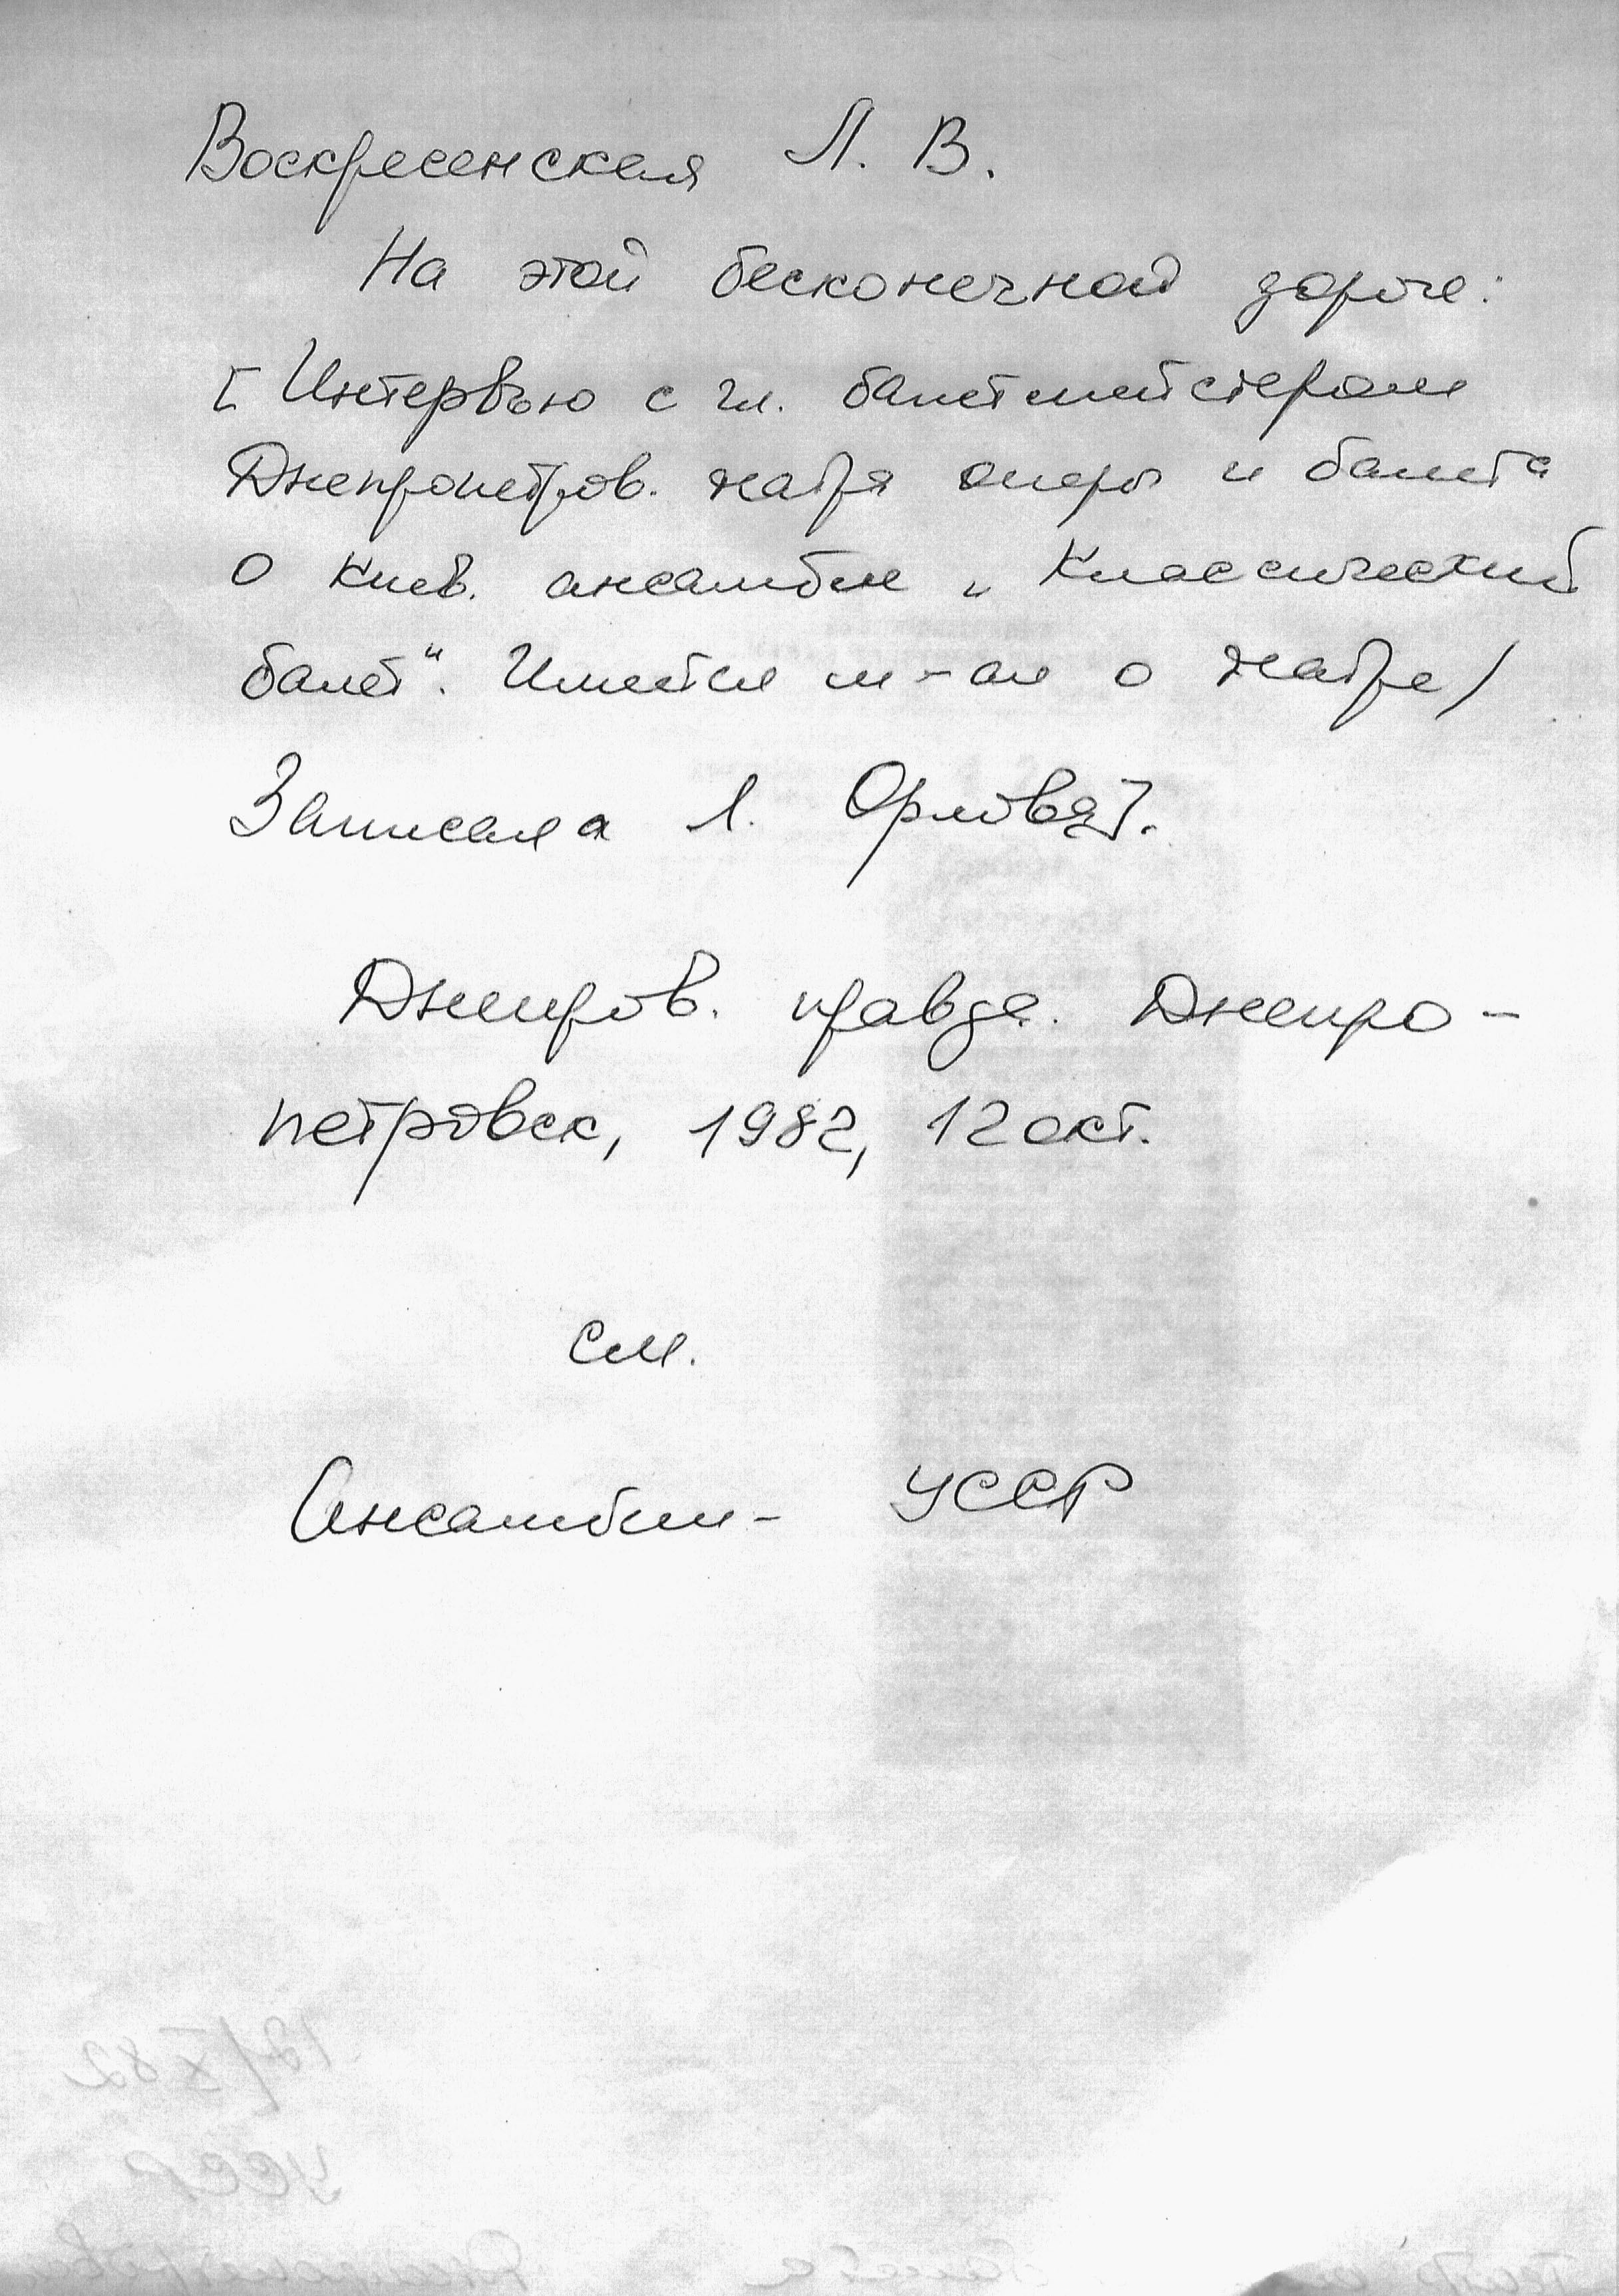 Воскресенская Л. В.
На этой бесконечной дороге:
[Интервью с гл. балетмейстером
Днепропетров. театра оперы и балета
о Киев. ансамбле „Классический
балет“. Имеется м-ал о театре/
Записала Л. Орлова].
Днепров. правда. Днепро-
петровск, 1982, 12 окт.
См.
Ансамбли- УССР
12/X 82
УССР